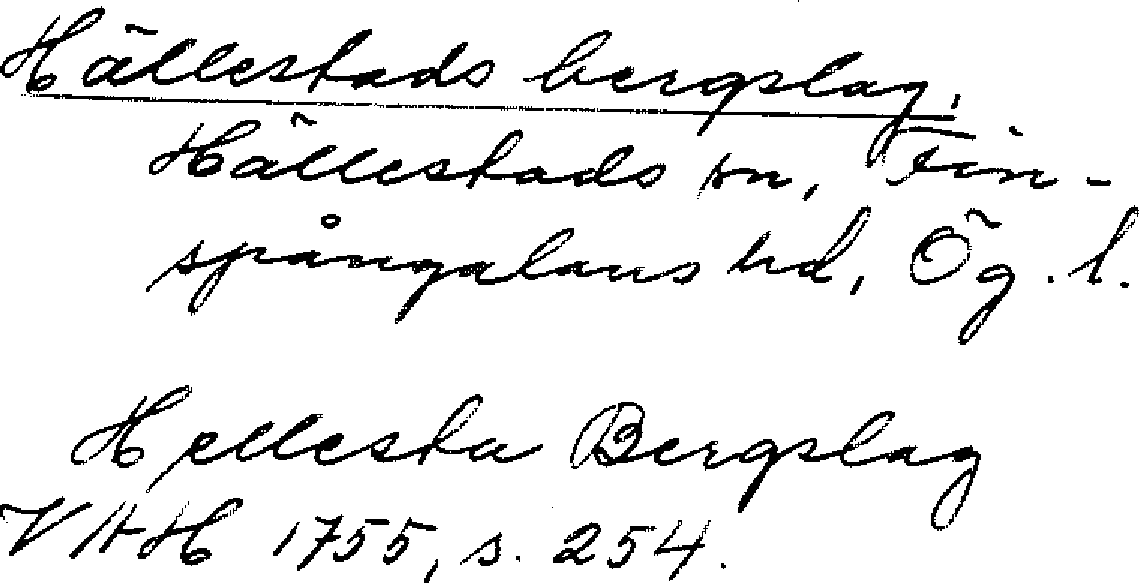 Hällestads bergslag.
Hällestads sn, Fin-
spångalans hd, Ög. l.
Hellesta Bergslag
VAH 1755, s. 254.